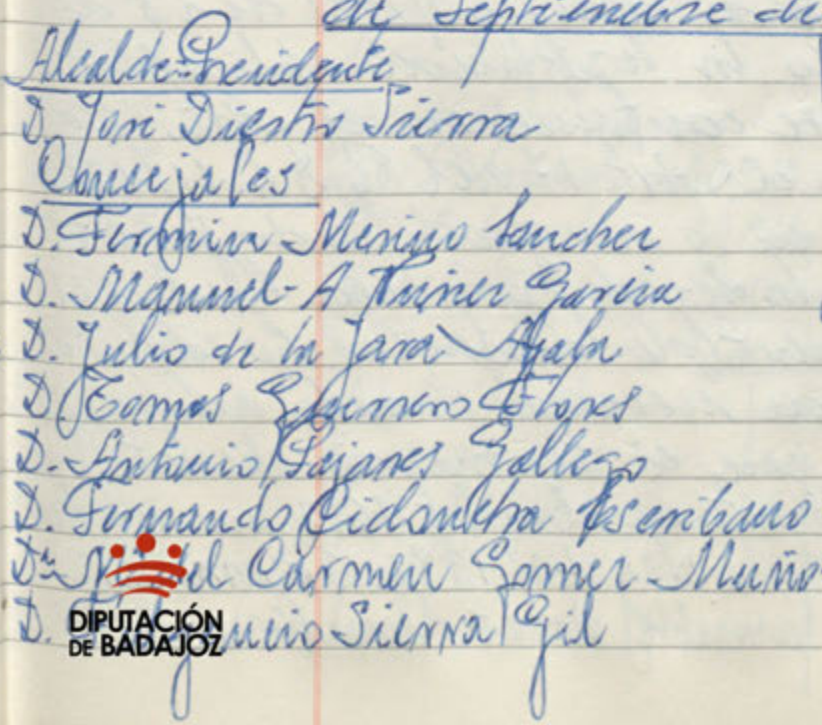 de Septiembre de
Alcalde-Presidente
D. José Diestro Sierra
Concejales
D. Fermina Merino Sanchez
D. Manuel-A Nuñez Garcia
D. Julio de la Jara Ayala
D. Tomas Guerrero Flores
D. Antonio Pajares Gallego
D. Fernando Cidoncha Escribano
Dª del Carmen Gomez Muño
D. Sierra Gil
DIPUTACIÓN
DE BADAJOZ